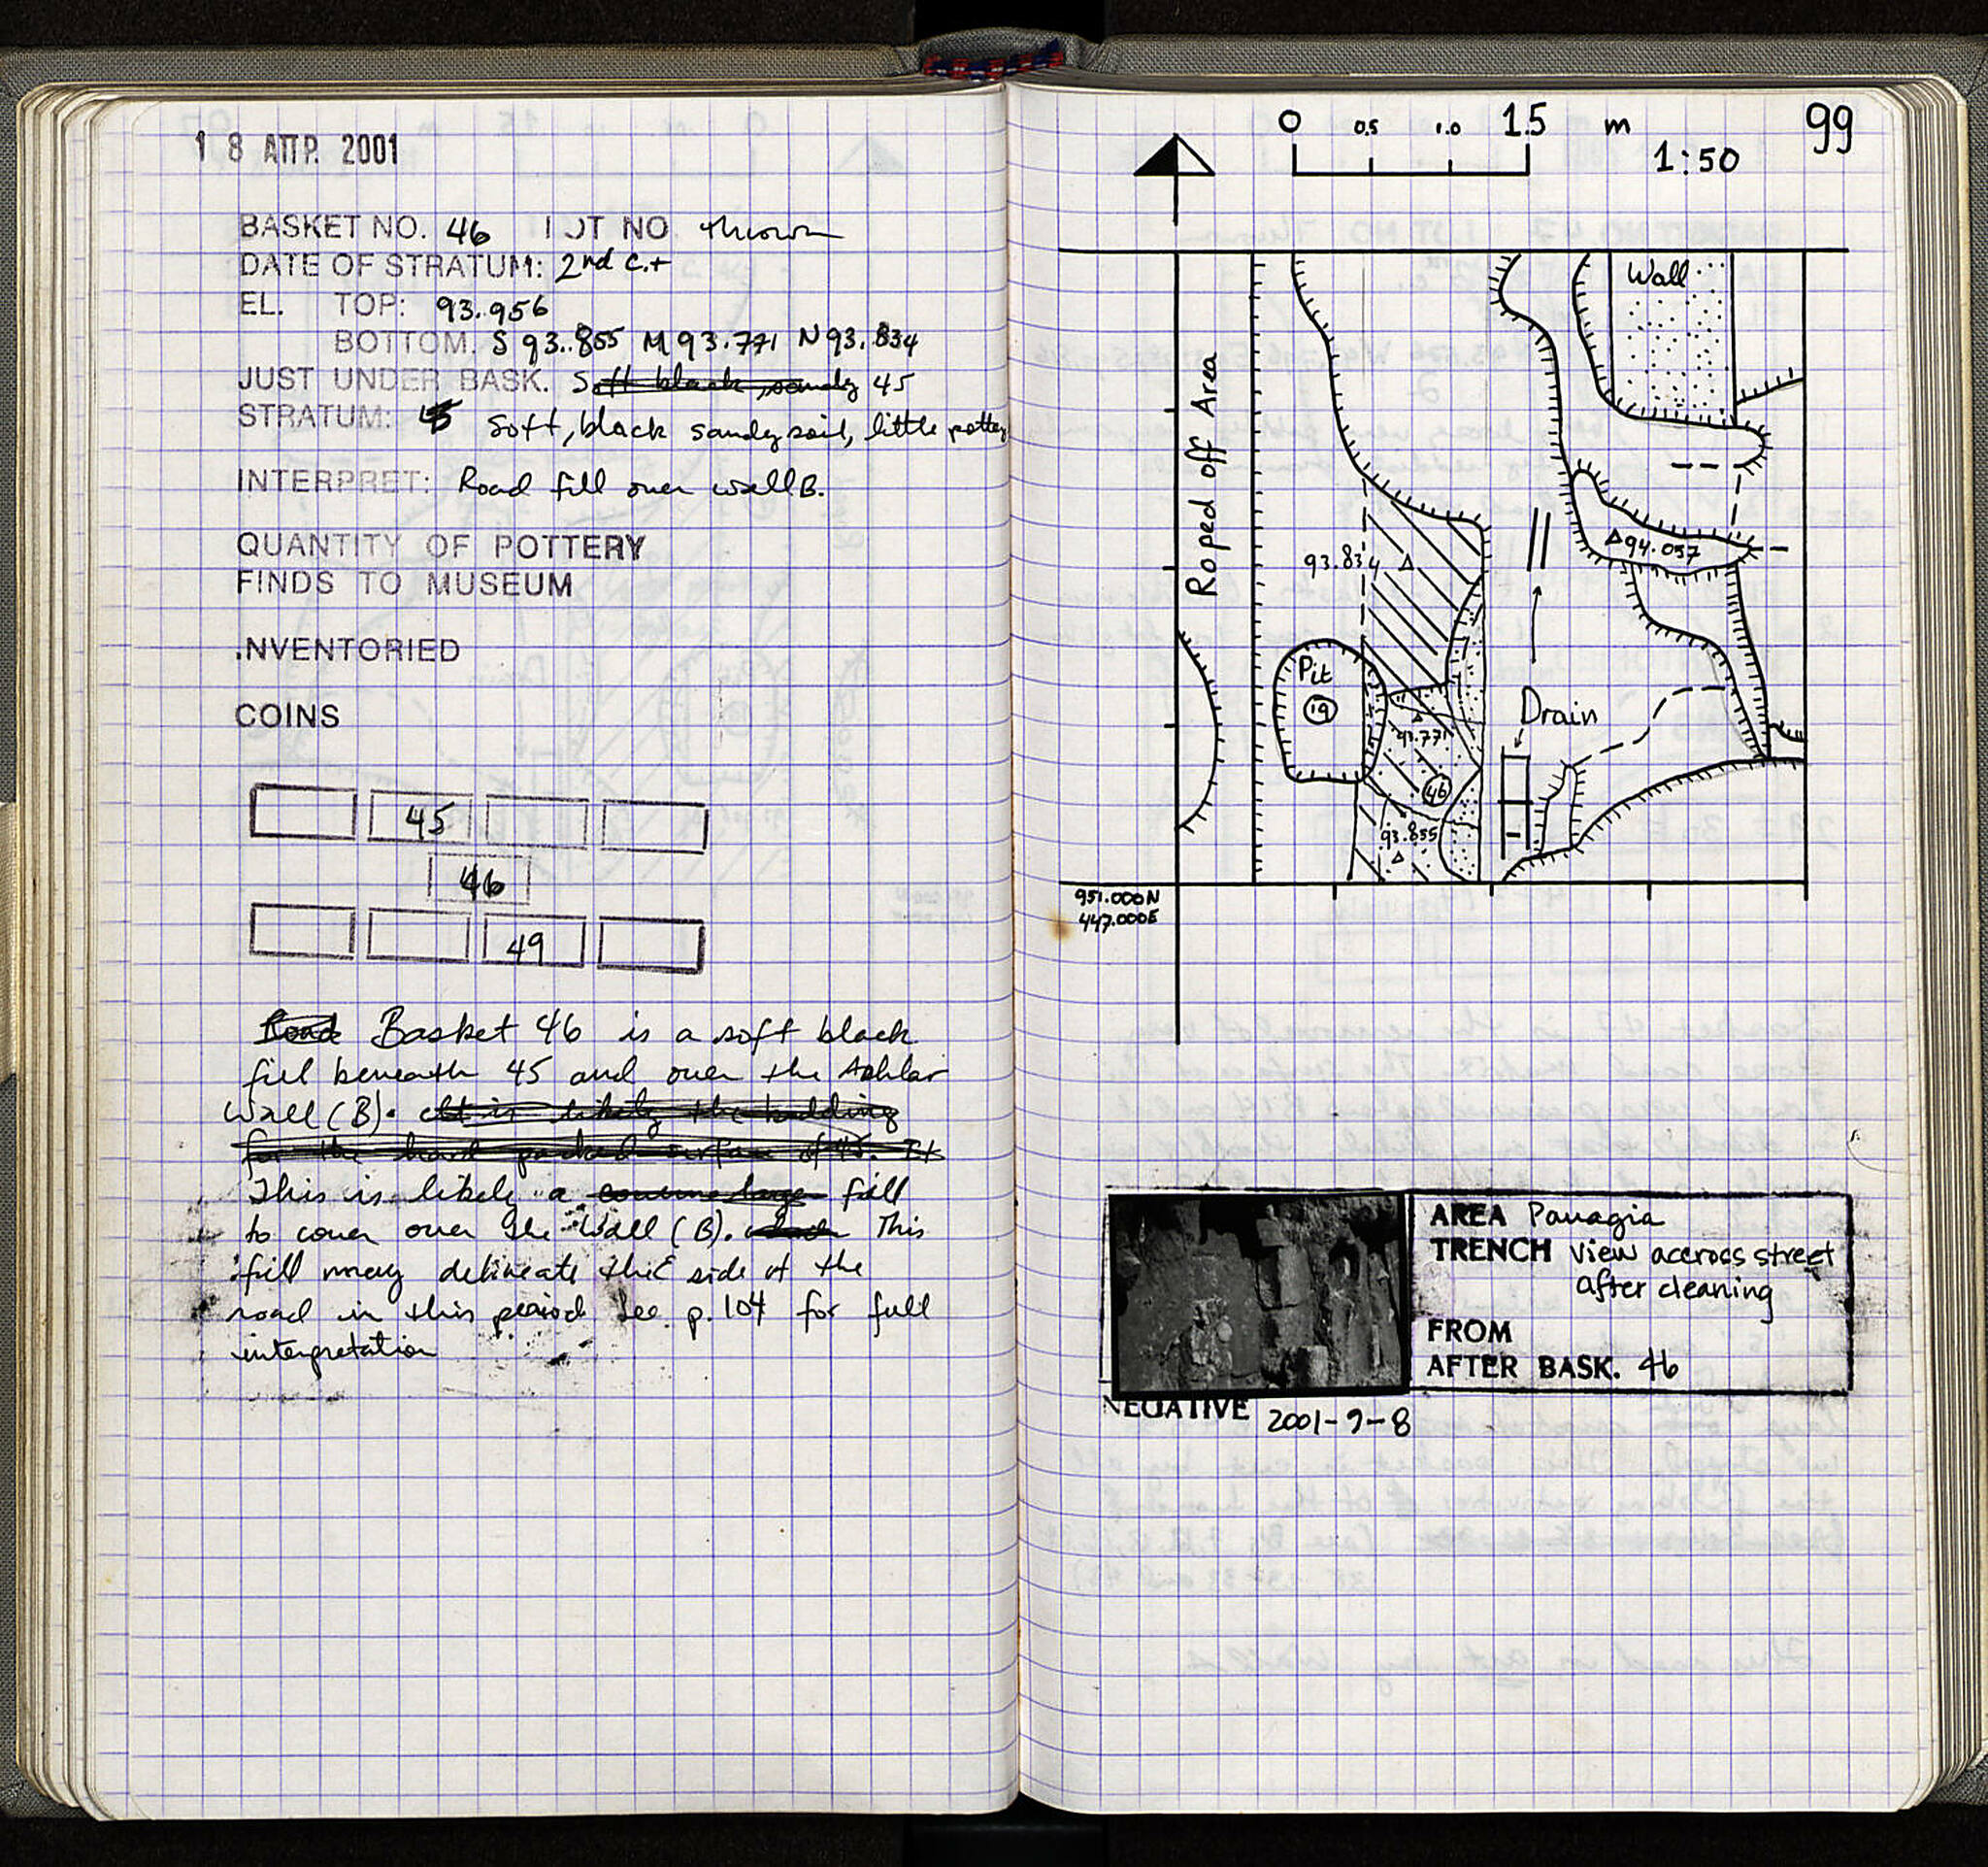 18 ΑΠΡ. 2001
BASKET NO. 46 LOT NO thrown
DATE OF STRATUM: 2nd c.+
EL. TOP: 93.956
BOTTOM. S 93.855 M 93.771 N 93.834
JUST UNDER BASK. Soft black, sandy 45
STRATUM: Soft, black sandy soil, little pottery
INTERPRET: Road fill over wall B.
QUANTITY OF POTTERY
FINDS TO MUSEUM
.NVENTORIED
COINS
45
46
49
Road Basket 46 is a soft black
fill beneath 45 and over the Ashlar
Wall (B). It is likely the bedding
for the hard packed surface of 45. It
This is likely a fill
to cover over the Wall (B). This
fill may delineate this side of the
road in this period. See p. 104 for full
interpretation
99
0 0.5 1.0 1.5 m
1:50
Wall
Roped off Area
93.834
94.057
Pit
19
Drain
93.771
46
93.855
951.000N
447.000E
AREA Panagia
TRENCH view accross street
after cleaning
FROM
AFTER BASK. 46
NEGATIVE 2001-9-8